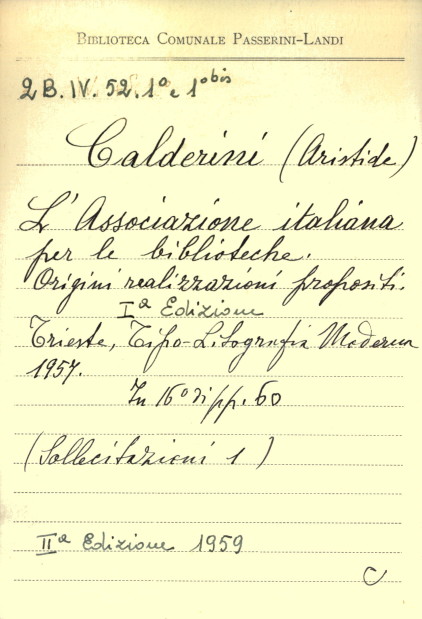 BIBLIOTECA COMUNALE PASSERINI-LANDI
2B.IV.52.1º e 1º bis
Calderini (Aristide)
L'Associazione italiana
per le biblioteche.
Origini realizzazioni propositi.
Iª Edizione
Trieste, Tipo-Litografia Moderna
1957.
In 16º di pp. 60
(Sollecitazioni 1)
IIª Edizione 1959
C